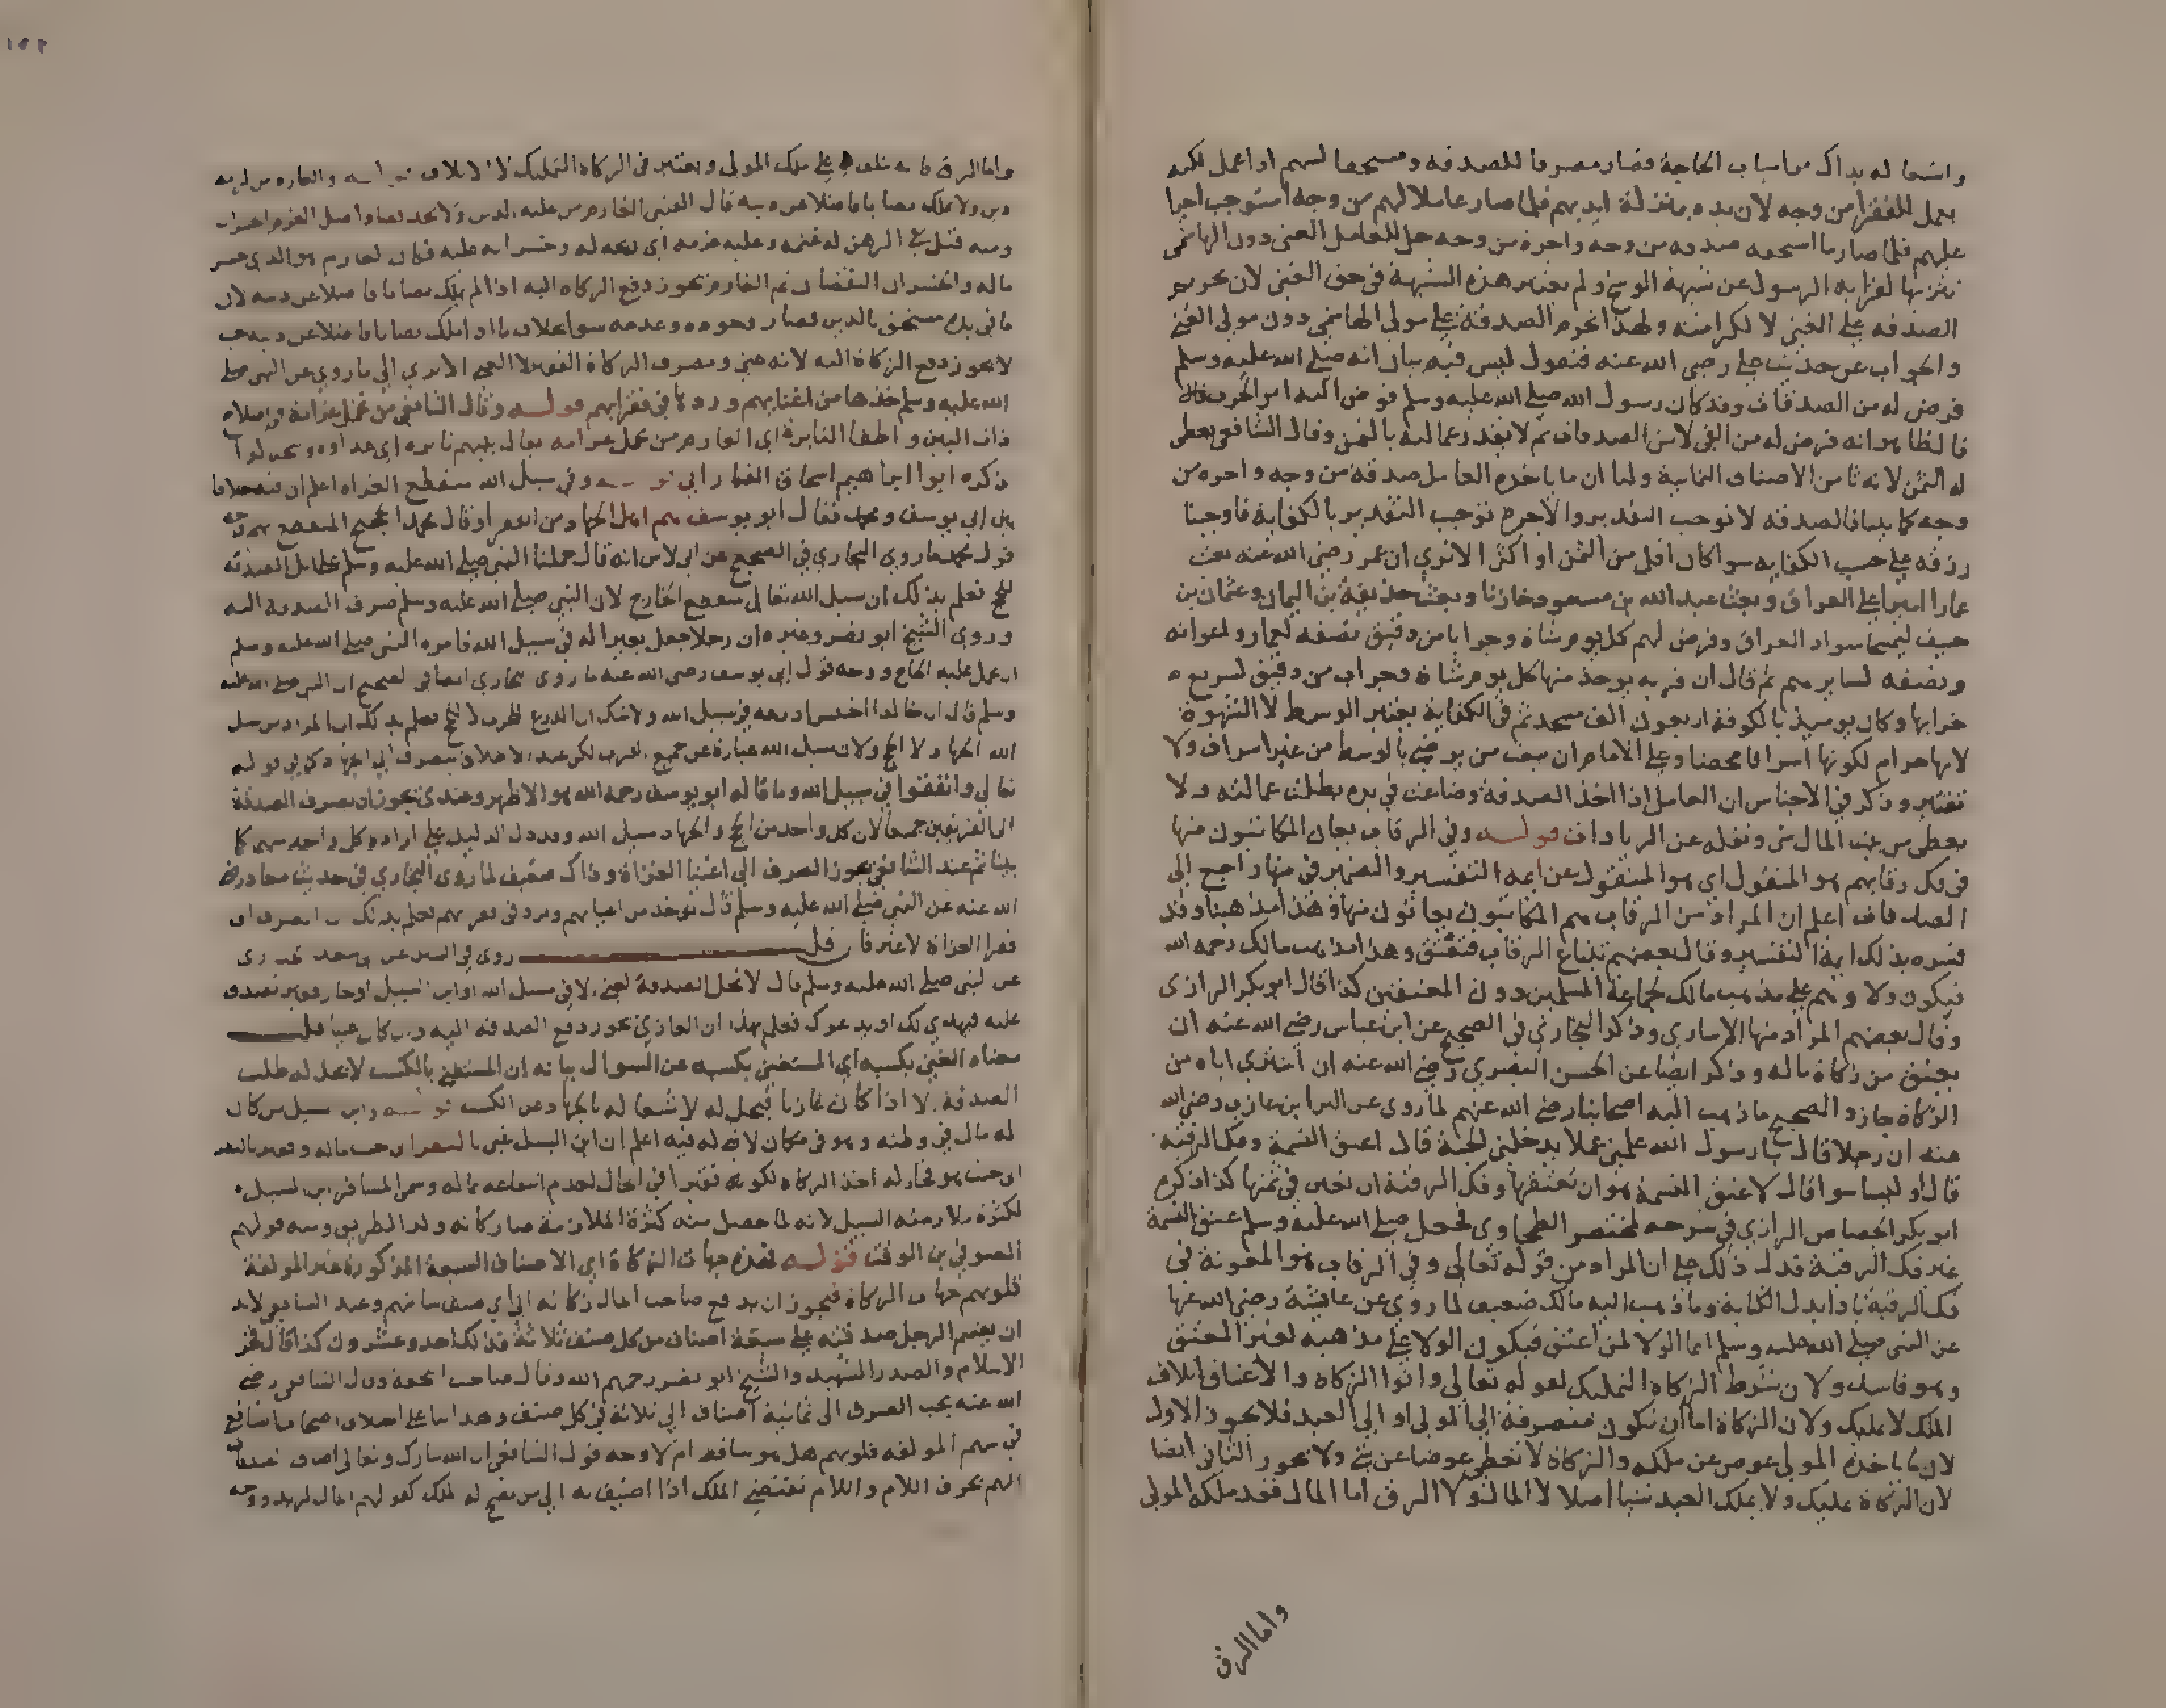 الحاجة فصار مصرفا للصدقة
يعمل للفقرا من وجه لان يده بمنزلة ايديهم فلما صار عاملا لهم من وجه استوجب اجرا
عليهم فلما صار ما استحقه صدقه من وجه واجرة من وجه حل للعامل الغني دون الهاشمي
لقرابه الرسول عن شبهة الوسخ ولم يعتبر هذه الشبهة في حق الغني لان
الصدقه على الغني لا لكرامته ولهذا تحرم الصدقة على مولى الهاشمي دون مولى الغني
والجواب عن حديث علي رضي الله عنه فنقول ليس فيه بيان انه صلى الله عليه وسلم
فرض له من الصدقات وقد كان رسول الله صلى الله عليه وسلم فوض اليه امر
فالظاهر انه فرض له من الفي لا من الصدقات ثم لا يقدر عمالته بالثمن وقال الشافعي يعطى
له الثمن لانه ثامن الاصناف الثمانية ولنا ان ما ياخذه العامل صدقة من وجه واجره من
وجه كما بينا فالصدقه لا توجب التقدير والاجرة توجب التقدير بالكفاية فاوجبنا
رزقه على حسب الكفايه سوا كان اقل من الثمن او اكثر الا ترى ان عمر رضي الله عنه بعث
عمارا اميرا على العراق وبعث عبد الله بن مسعود خازنا وبعث حذيفة بن اليمان وعثمان بن
حنيف ليمسحا سواد العراق وفرض لهم كل يوم شاة وجرابا من دقيق نصفه لعمار ولاعوانه
ونصفه لسايرهم ثم قال ان قريه يوخذ منها كل يوم شاة وجراب من دقيق لسريع
خرابها وكان يومئذ بالكوفة اربعون الف مسجد ثم في الكفاية يعتبر الوسط لا الشهوة
لانها حرام لكونها اسرافا محضا وعلى الامام ان يبعث من يرضى بالوسط من غير اسراف ولا
تقتير وذكر في الاجناس ان العامل اذا اخذ الصدقة وضاعت في يده بطلت عمالته ولا
يعطى من بيت المال شي ونقله عن الزيادات قوله وفي الرقاب يعان المكاتبون منها
في فك رقابهم هو المنقول اي هو المنقول عن ايمه التفسير والضمير في منها راجع الى
الصدقات اعلم ان المراد من الرقاب هم المكاتبون يعانون منها وهذا مذهبنا وقد
فسره بذلك ايمة التفسير وقال بعضهم تبتاع الرقاب فتعتق وهذا مذهب مالك رحمه الله
فيكون ولاوهم على مذهب مالك لجماعة المسلمين دون المعتقين كذا قال ابو بكر الرازي
وقال بعضهم المراد منها الاسارى وذكر البخاري في الصحيح عن ابن عباس رضي الله عنه ان
يعتق من زكاة ماله وذكر ايضا عن الحسن البصري رضي الله عنه ان اشترى اباه من
الزكاة جاز والصحيح ما ذهب اليه اصحابنا رضي الله عنهم لما روي عن البرا بن عازب رضي الله
عنه ان رجلا قال يا رسول الله علمني عملا يدخلني الجنة قال اعتق النسمة وفك الرقبة
قال او ليسا سوا قال لا عتق النسمة هو ان تعتقها وفك الرقبة ان تعين في ثمنها كذا ذكره
ابو بكر الجصاص الرازي في شرحه لمختصر الطحاوي فجعل صلى الله عليه وسلم عتق النسمة
غير فك الرقبة فدل ذلك على ان المراد من قوله تعالى وفي الرقاب هو المعونة في
فك الرقبة بادا بدل الكتابة وما ذهب اليه مالك ضعيف لما روي عن عايشة رضي الله عنها
عن النبي صلى الله عليه وسلم انما الولا لمن اعتق فيكون الولا على مذهبه لغير المعتق
وهو فاسد ولان شرط الزكاة التمليك لقوله تعالى واتوا الزكاة والاعتاق اتلاف
الملك لا تمليك ولان الزكاة اما ان تكون منصرفة الى المولى او الى العبد فلا يجوز الاول
لان ما ياخذه المولى عوض عن ملكه والزكاة لا تعطى عوضا عن شي ولا يجوز الثاني ايضا
لان الزكاة تمليك ولا يملك العبد شيا اصلا لا المال ولا الرق اما المال فقد ملكه المولى
واما الرق
١٥٢
واما الرق على ملك المولى ويعتبر في الزكاة التمليك لا الاتلاف
ولا يملك نصابا فاضلا عن دينه قال
ومنه قيل في الرهن له غنمه وعليه غرمه اي نفعه له وخسرانه عليه فكان الغارم هو الذي خسر
ماله والخسران النقصان ثم الغارم يجوز دفع الزكاه اليه اذا لم يملك نصابا فاضلا عن دينه لان
ما في يده مستحق بالدين فصار وجوده وعدمه سوا بخلاف ما اذا ملك نصابا فاضلا عن دينه حيث
لا يجوز دفع الزكاة اليه لانه غني ومصرف الزكاة الفقير لا الغني الا ترى الى ما روي عن النبي صلى
الله عليه وسلم خذها من اغنيايهم وردها في فقرايهم قوله وقال الشافعي من تحمل غرامة في اصلاح
ذات البين واطفا النايرة اي الغارم من تحمل غرامه
ذكره ابو ابراهيم اسحاق الفارابي قوله وفي سبيل الله منقطع الغزاه اعلم ان فيه خلافا
بين ابي يوسف ومحمد فقال ابو يوسف هم اهل الجهاد من الفقرا وقال محمد الحجيج المنقطع بهم وجه
قول محمد ما روى البخاري في الصحيح عن ابي لاس انه قال حملنا النبي صلى الله عليه وسلم على ابل الصدقة
للحج فعلم بذلك ان سبيل الله تعالى منقطع الحاج لان النبي صلى الله عليه وسلم صرف الصدقة اليه
وروى الشيخ ابو نصر وغيره ان رجلا جعل بعيرا له في سبيل الله فامره النبي صلى الله عليه وسلم
ان يحمل عليه الحاج ووجه قول ابي يوسف رضي الله عنه ما روى البخاري ايضا في الصحيح ان النبي صلى الله عليه
وسلم قال ان خالدا احتبس ادرعه في سبيل الله ولا شك ان الدرع للحرب لا للحج فعلم بذلك ان المراد من سبيل
الله الجهاد لا الحج ولان سبيل الله عبارة عن جميع القرب لكن عند الاطلاق ينصرف الى الجهاد كما في قوله
تعالى وانفقوا في سبيل الله وما قاله ابو يوسف رحمه الله هو الاظهر وعندي يجوز ان يصرف الصدقة
الى الفريقين جميعا لان كل واحد من الحج والجهاد سبيل الله وقد دل الدليل على ارادة كل واحد منهما كما
بينا ثم عند الشافعي يجوز الصرف الى اغنيا الغزاة وذاك ضعيف لما روى البخاري في حديث معاذ رضي
الله عنه عن النبي صلى الله عليه وسلم قال توخذ من اغنيايهم وترد في فقرايهم فعلم بذلك ان المصرف
فقرا الغزاة لا غير فان قلت روي في السنن عن
عن النبي صلى الله عليه وسلم قال لا تحل الصدقة لغني الا في سبيل الله او ابن السبيل او جار فقير تصدق
عليه فيهدي لك او يدعوك فعلم بهذا ان الغازي يجوز دفع الصدقه اليه وان كان غنيا قلت
معناه الغني بكسبه اي المستغني بكسبه عن السوال بيانه ان المستغني بالكسب لا تحل له طلب
الصدقة الا اذا كان غازيا فيحل له لاشتغاله بالجهاد عن الكسب قوله وابن السبيل من كان
له مال في وطنه وهو في مكان لا شي له فيه اعلم ان ابن السبيل غني
لكونه فقيرا في الحال لعدم انتفاعه بماله وسمي المسافر ابن السبيل
لكثرة ملازمته السبيل لانه لما حصل منه كثرة الملازمة صار كانه ولد الطريق ومنه قولهم
الصوفي ابن الوقت قوله فهذه جهات الزكاة اي الاصناف السبعة المذكورة غير المولفة
قلوبهم جهات الزكاة فيجوز ان يدفع صاحب المال زكاته الى اي صنف شا منهم وعند الشافعي لا بد
ان يقسم الرجل صدقته على سبعة اصناف من كل صنف ثلاثة فذلك احد وعشرون كذا قال فخر
الاسلام والصدر الشهيد والشيخ ابو نصر رحمهم الله وقال صاحب التحفة وقال الشافعي رضي
الله عنه يجب الصرف الى ثمانية اصناف الى ثلاثة في كل صنف وهذا بنا على اختلاف اصحاب الشافعي
في سهم المولفه قلوبهم هل هو ساقط ام لا وجه قول الشافعي ان الله تبارك وتعالى اضاف الصدقات
اليهم بحرف اللام واللام تقتضي الملك اذا اضيف به الى من يصح له الملك كقولهم المال لزيد ووجه